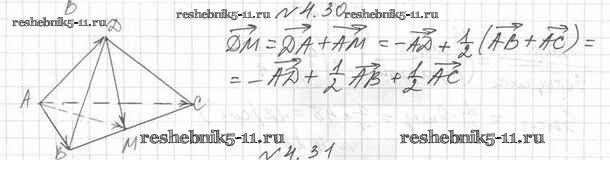 B
reshebnik5-11.ru
№ 4.30
reshebnik5-11.ru
D
DM⃗ = DA⃗ + AM⃗ = -AD⃗ + 1/2 (AB⃗ + AC⃗) =
= -AD⃗ + 1/2 AB⃗ + 1/2 AC⃗
A
C
M
B
reshebnik5-11.ru
reshebnik5-11.ru
№ 4.31